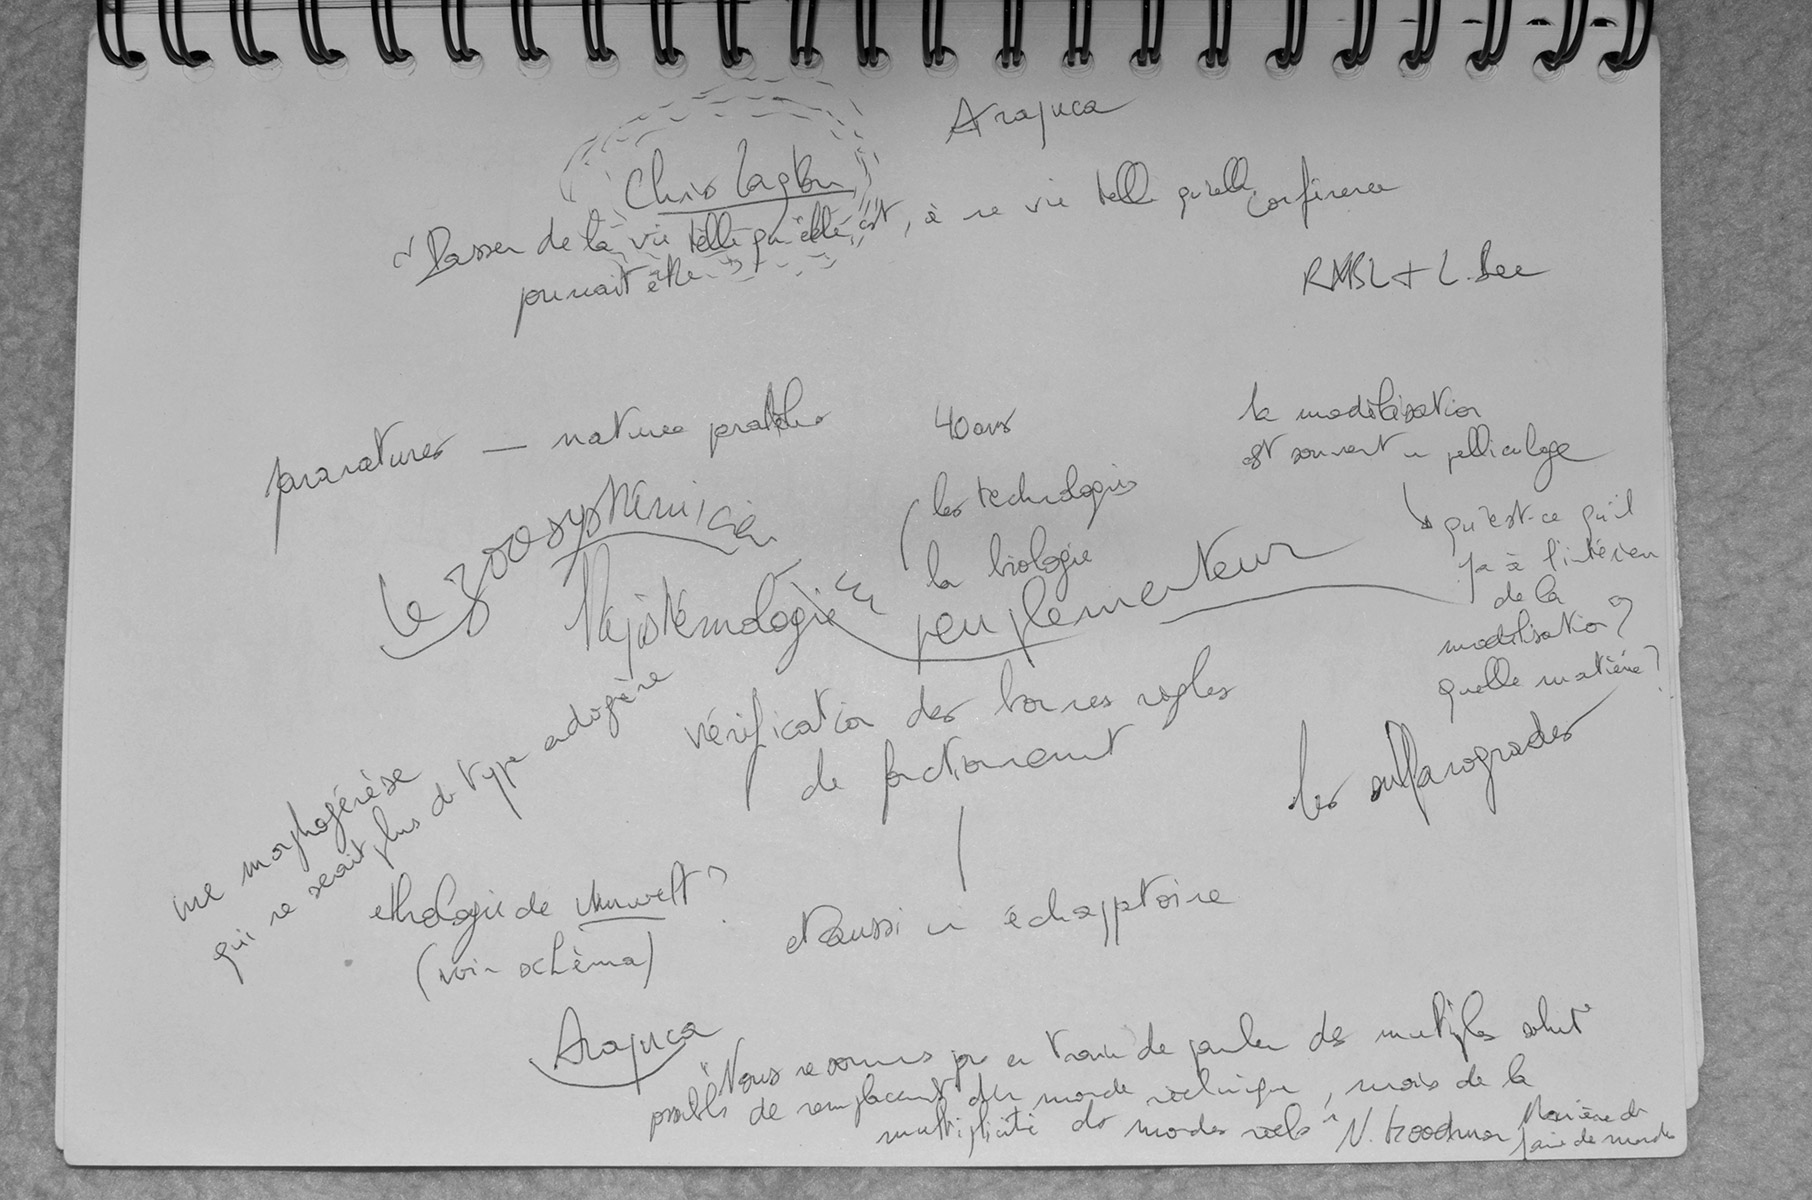 Arajuca
Chris Langton
"Passer de la vie telle qu'elle est, à une vie telle qu'elle
pourrait être"
conférence
+ L. Bec
paranatures — natures parallèles
40 ans
la modélisation
est souvent un pelliculage
les technologies
la biologie
qu'est-ce qu'il
y a à l'intérieur
de la
modélisation?
quelle matière?
Le zoosystémicien
peuplementeur
vérification des bonnes règles
de fonctionnement
les sulfanogrades
une morphogénèse
qui ne serait plus de type endogène
ethologie de Umwelt?
(voir schéma)
et aussi un échappatoire
Arajuca
"Nous ne sommes pas en train de parler des multiples solut°
possibles de remplacement du monde , mais de la
multiplicité des mondes réels" N. Goodman
Manière de
faire des mondes